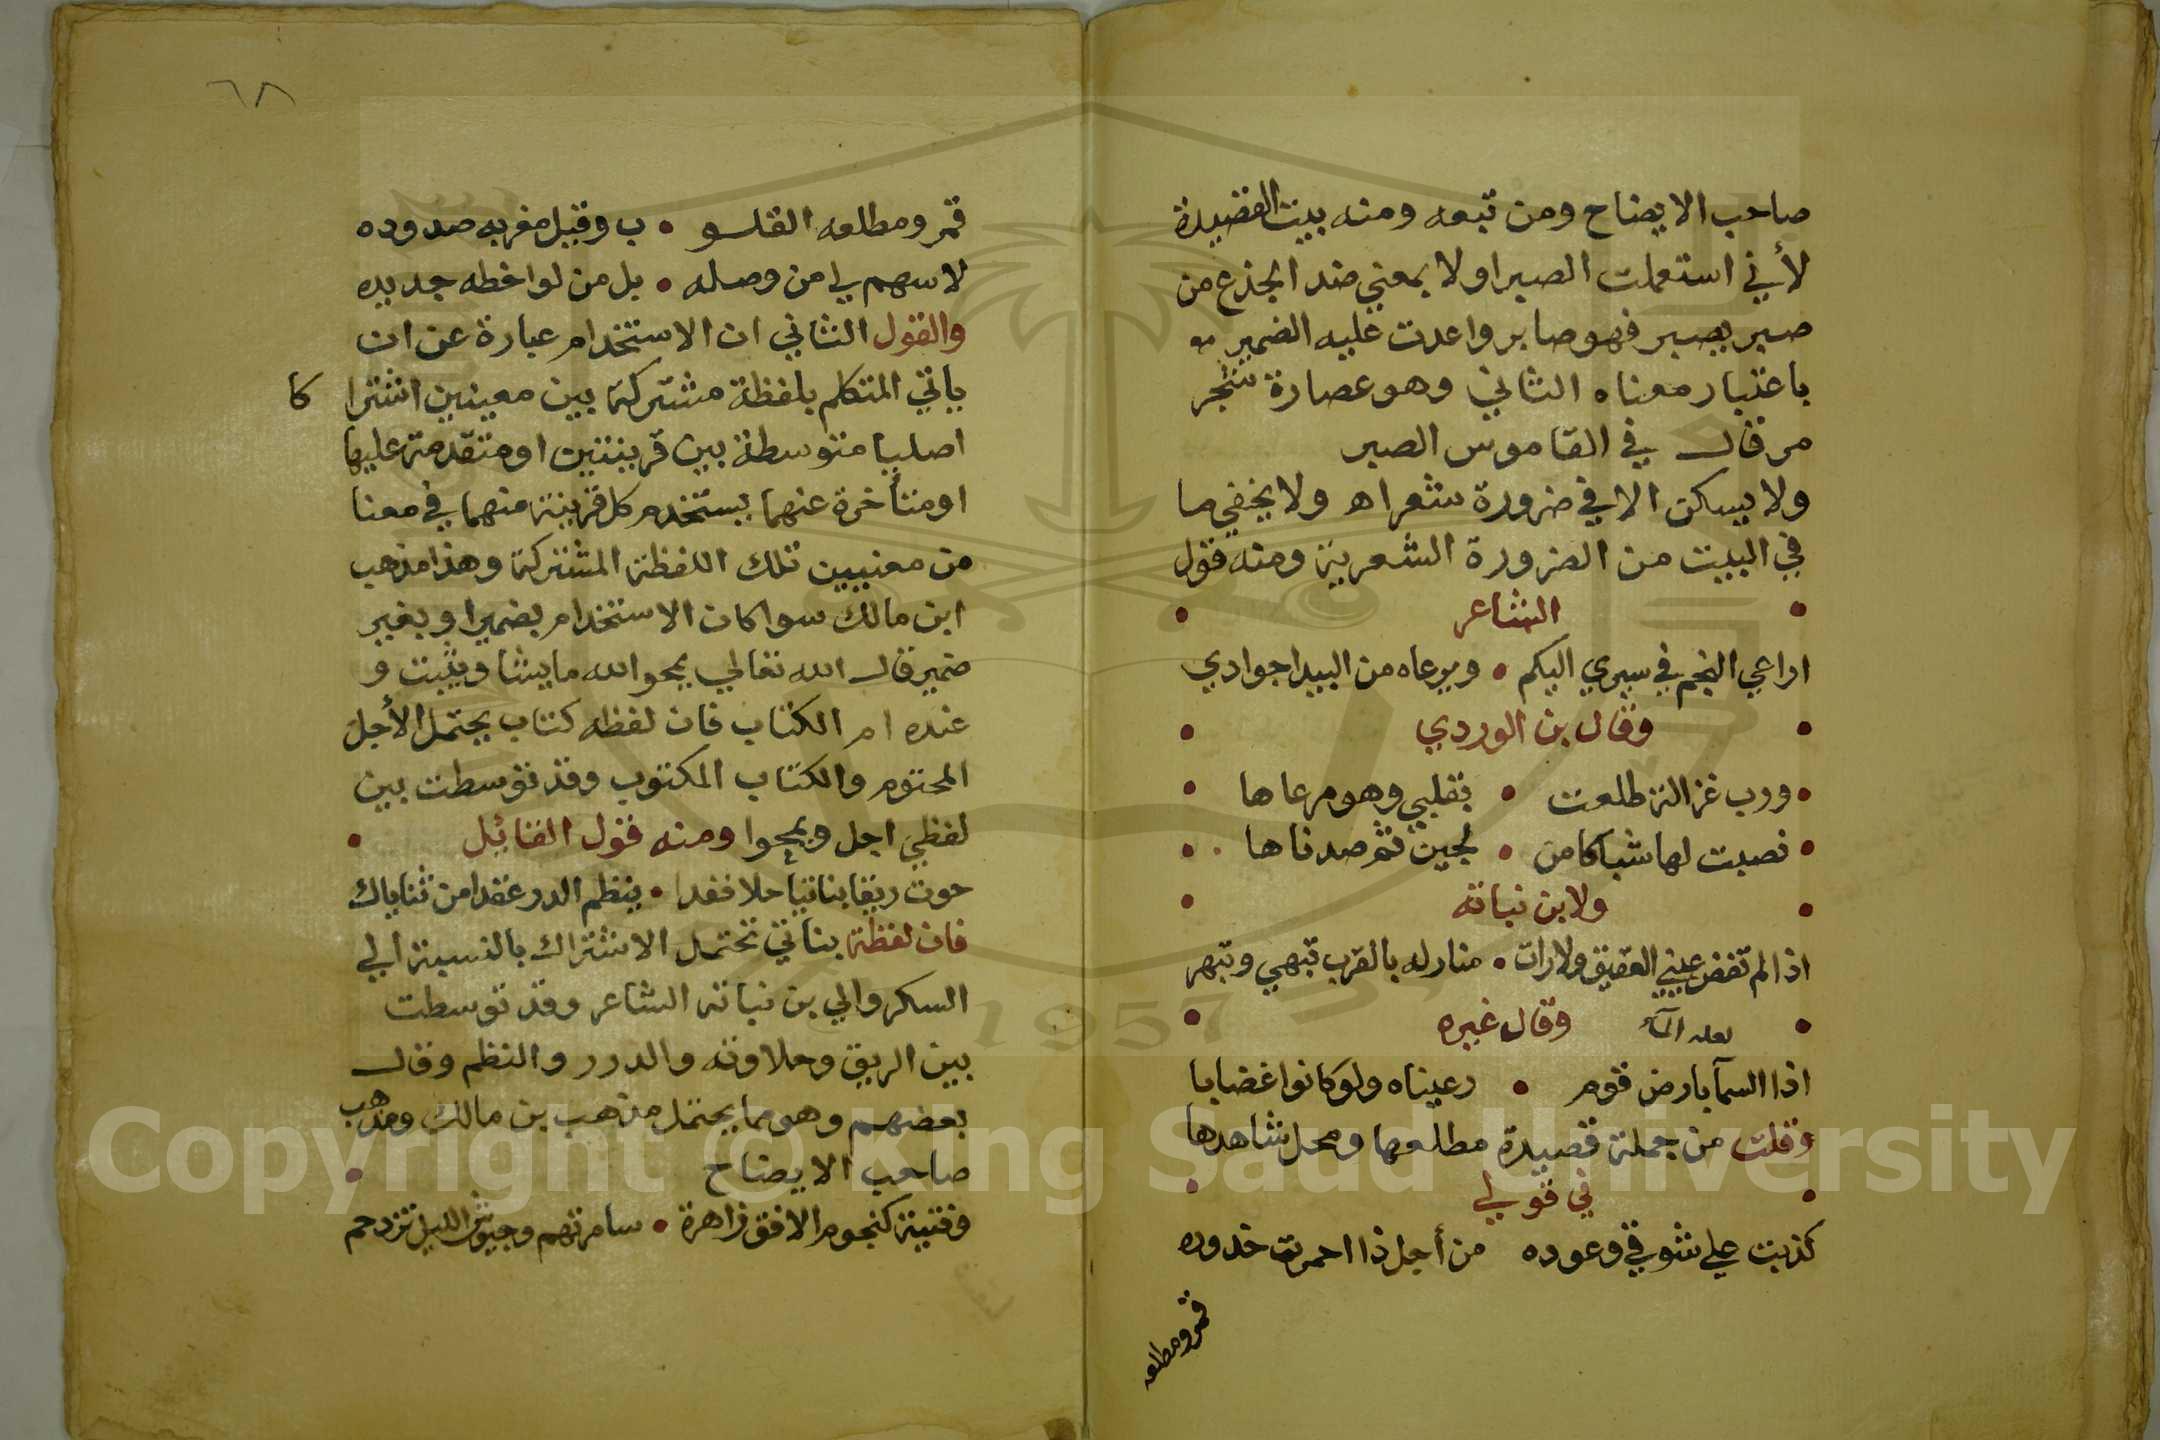 صاحب الايضاح ومن تبعه ومنه بيت القصيدة
لأني استعملت الصبر اولا بمعني ضد الجذع من
صبر يصبر فهو صابر واعدت عليه الضمير
باعتبار معناه الثاني وهو عصارة شجر
مر قال في القاموس الصبر
ولا يسكن الا في ضرورة شعر اه ولا يخفي ما
في البيت من الضرورة الشعرية ومنه قول
الشاعر
اراعي النجم في سيري اليكم • ويرعاه من البيدا جوادي
وقال بن الوردي
ورب غزالة طلعت • بقلبي وهو مرعاها
نصبت لها شباكا من • لجين ثم صدناها
ولابن نباته
اذا لم تفض عيني العقيق ولا رات • منازله بالقرب تبهي وتبهر
وقال غيره
اذا السمآ بارض قوم • رعيناه ولو كانوا غضابا
وقلت من جملة قصيدة مطلعها ومحل شاهدها
في قولي
كذبت علي شوقي وعوده من أجل ذا احمرت خدوده
قمر ومطلعه
٦٨
قمر ومطلعه القلو • ب وقبل مغربه صدوده
لا سهم لي من وصله • بل من لواحظه جديده
والقول الثاني ان الاستخدام عبارة عن ان
ياتي المتكلم بلفظة مشتركة بين معنيين اشترا
كا
اصليا متوسطة بين قرينتين او متقدمة عليها
او متأخرة عنهما يستخدم كل قرينة منهما في معنا
من معنيين تلك اللفظة المشتركة وهذا مذهب
ابن مالك سوا كان الاستخدام بضمير او بغير
ضمير قال الله تعالي يمحو الله ما يشا ويثبت و
عنده ام الكتاب فان لفظه كتاب يحتمل الأجل
المحتوم والكتاب المكتوب وقد توسطت بين
لفظي اجل ويمحوا ومنه قول القائل
حوت ريقا بناتيا حلا فغدا • ينظم الدر عقدا من ثناياك
فان لفظة بناتي تحتمل الاشتراك بالنسبة الي
السكر والي بن نباته الشاعر وقد توسطت
بين الريق وحلاوته والدرر والنظم وقال
بعضهم وهو مما يحتمل مذهب بن مالك ومذهب
صاحب الايضاح
وفتية كنجوم الافق زاهرة • سامرتهم وجيوش الليل تزدحم
1957
Copyright © King Saud University